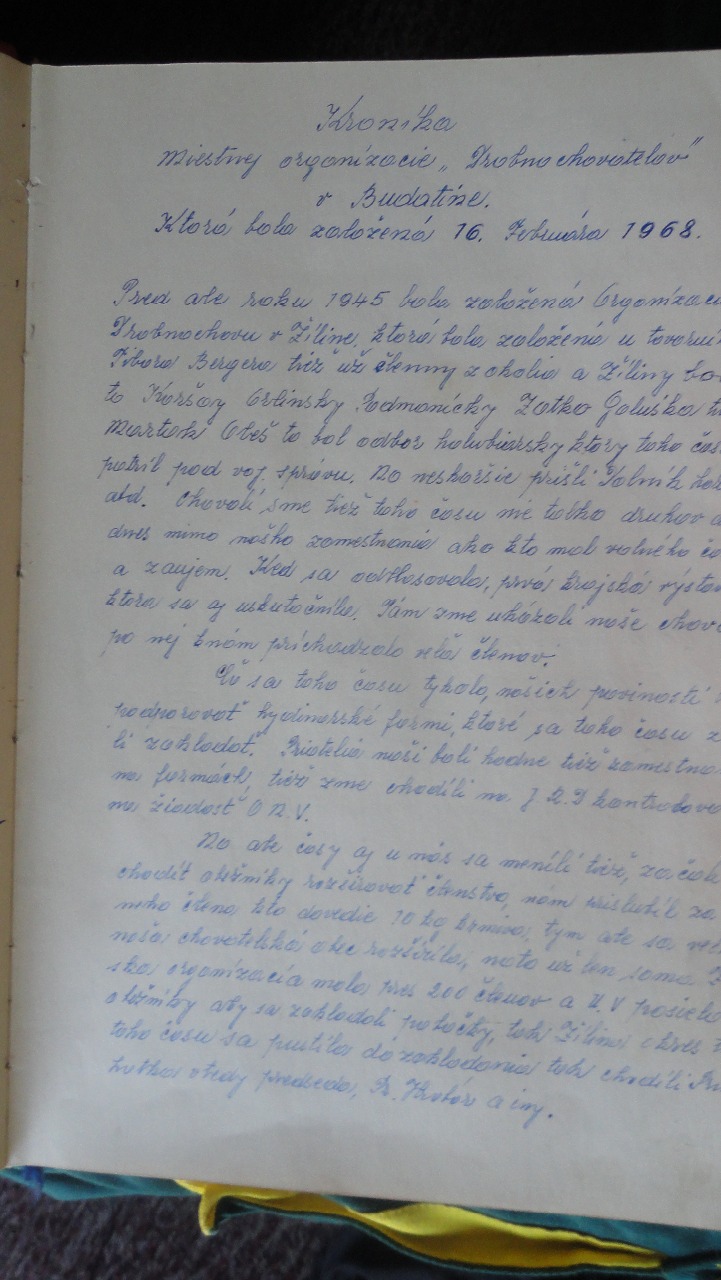 Kronika
Miestnej organizacie „Drobnochovatelov"
v Budatíne.
Ktorá bola založená 16. Februára 1968.
Pred ale roku 1945 bola založená Organizaci
Drobnochovu v Žiline, ktorá bola založená u
Tibora Bergera tiež už členmy z okolia a Žiliny
to Koršov Orlinsky Podmanický Zatko Galuška
to bol odbor holubiarsky ktory toho čas
patril pod voj. správu. No neskoršie prišli
atd. Chovali sme tiež toho času nie tolko druhov
dnes mimo nošho zamestnania ako kto mal volného
a zaujem. Ked sa odhlasovala, prvá krajská výstav
ktora sa aj uskutočnila. Tám zme ukázali naše chov
po nej knám prichadzalo velá členov.
Čo sa toho času tykalo, nošich povinností
podporovať hydinarské farmi, ktoré sa toho času
li zakladať. Priatelia naši boli hodne tiež zamestna
na farmách, tiež zme chodili na J R D kontrolova
na žiadosť O N.V.
No ale časy aj u nás sa menili tiež, začali
chodiť obežniky rozširovať členstvo, nám prislubili za
neho člena kto dovedie 10 kg krmiva, tym ale sa
noša chovatelská obec rozšírila, nato už len sama
ska organizacia mala pres 200 členov a U.V posiela
obežniky aby sa zakladali pobočky, tak Žilina okres
toho času sa pustila do zakladania tak chodili
hutka vtedy predseda, Pr. a iny.